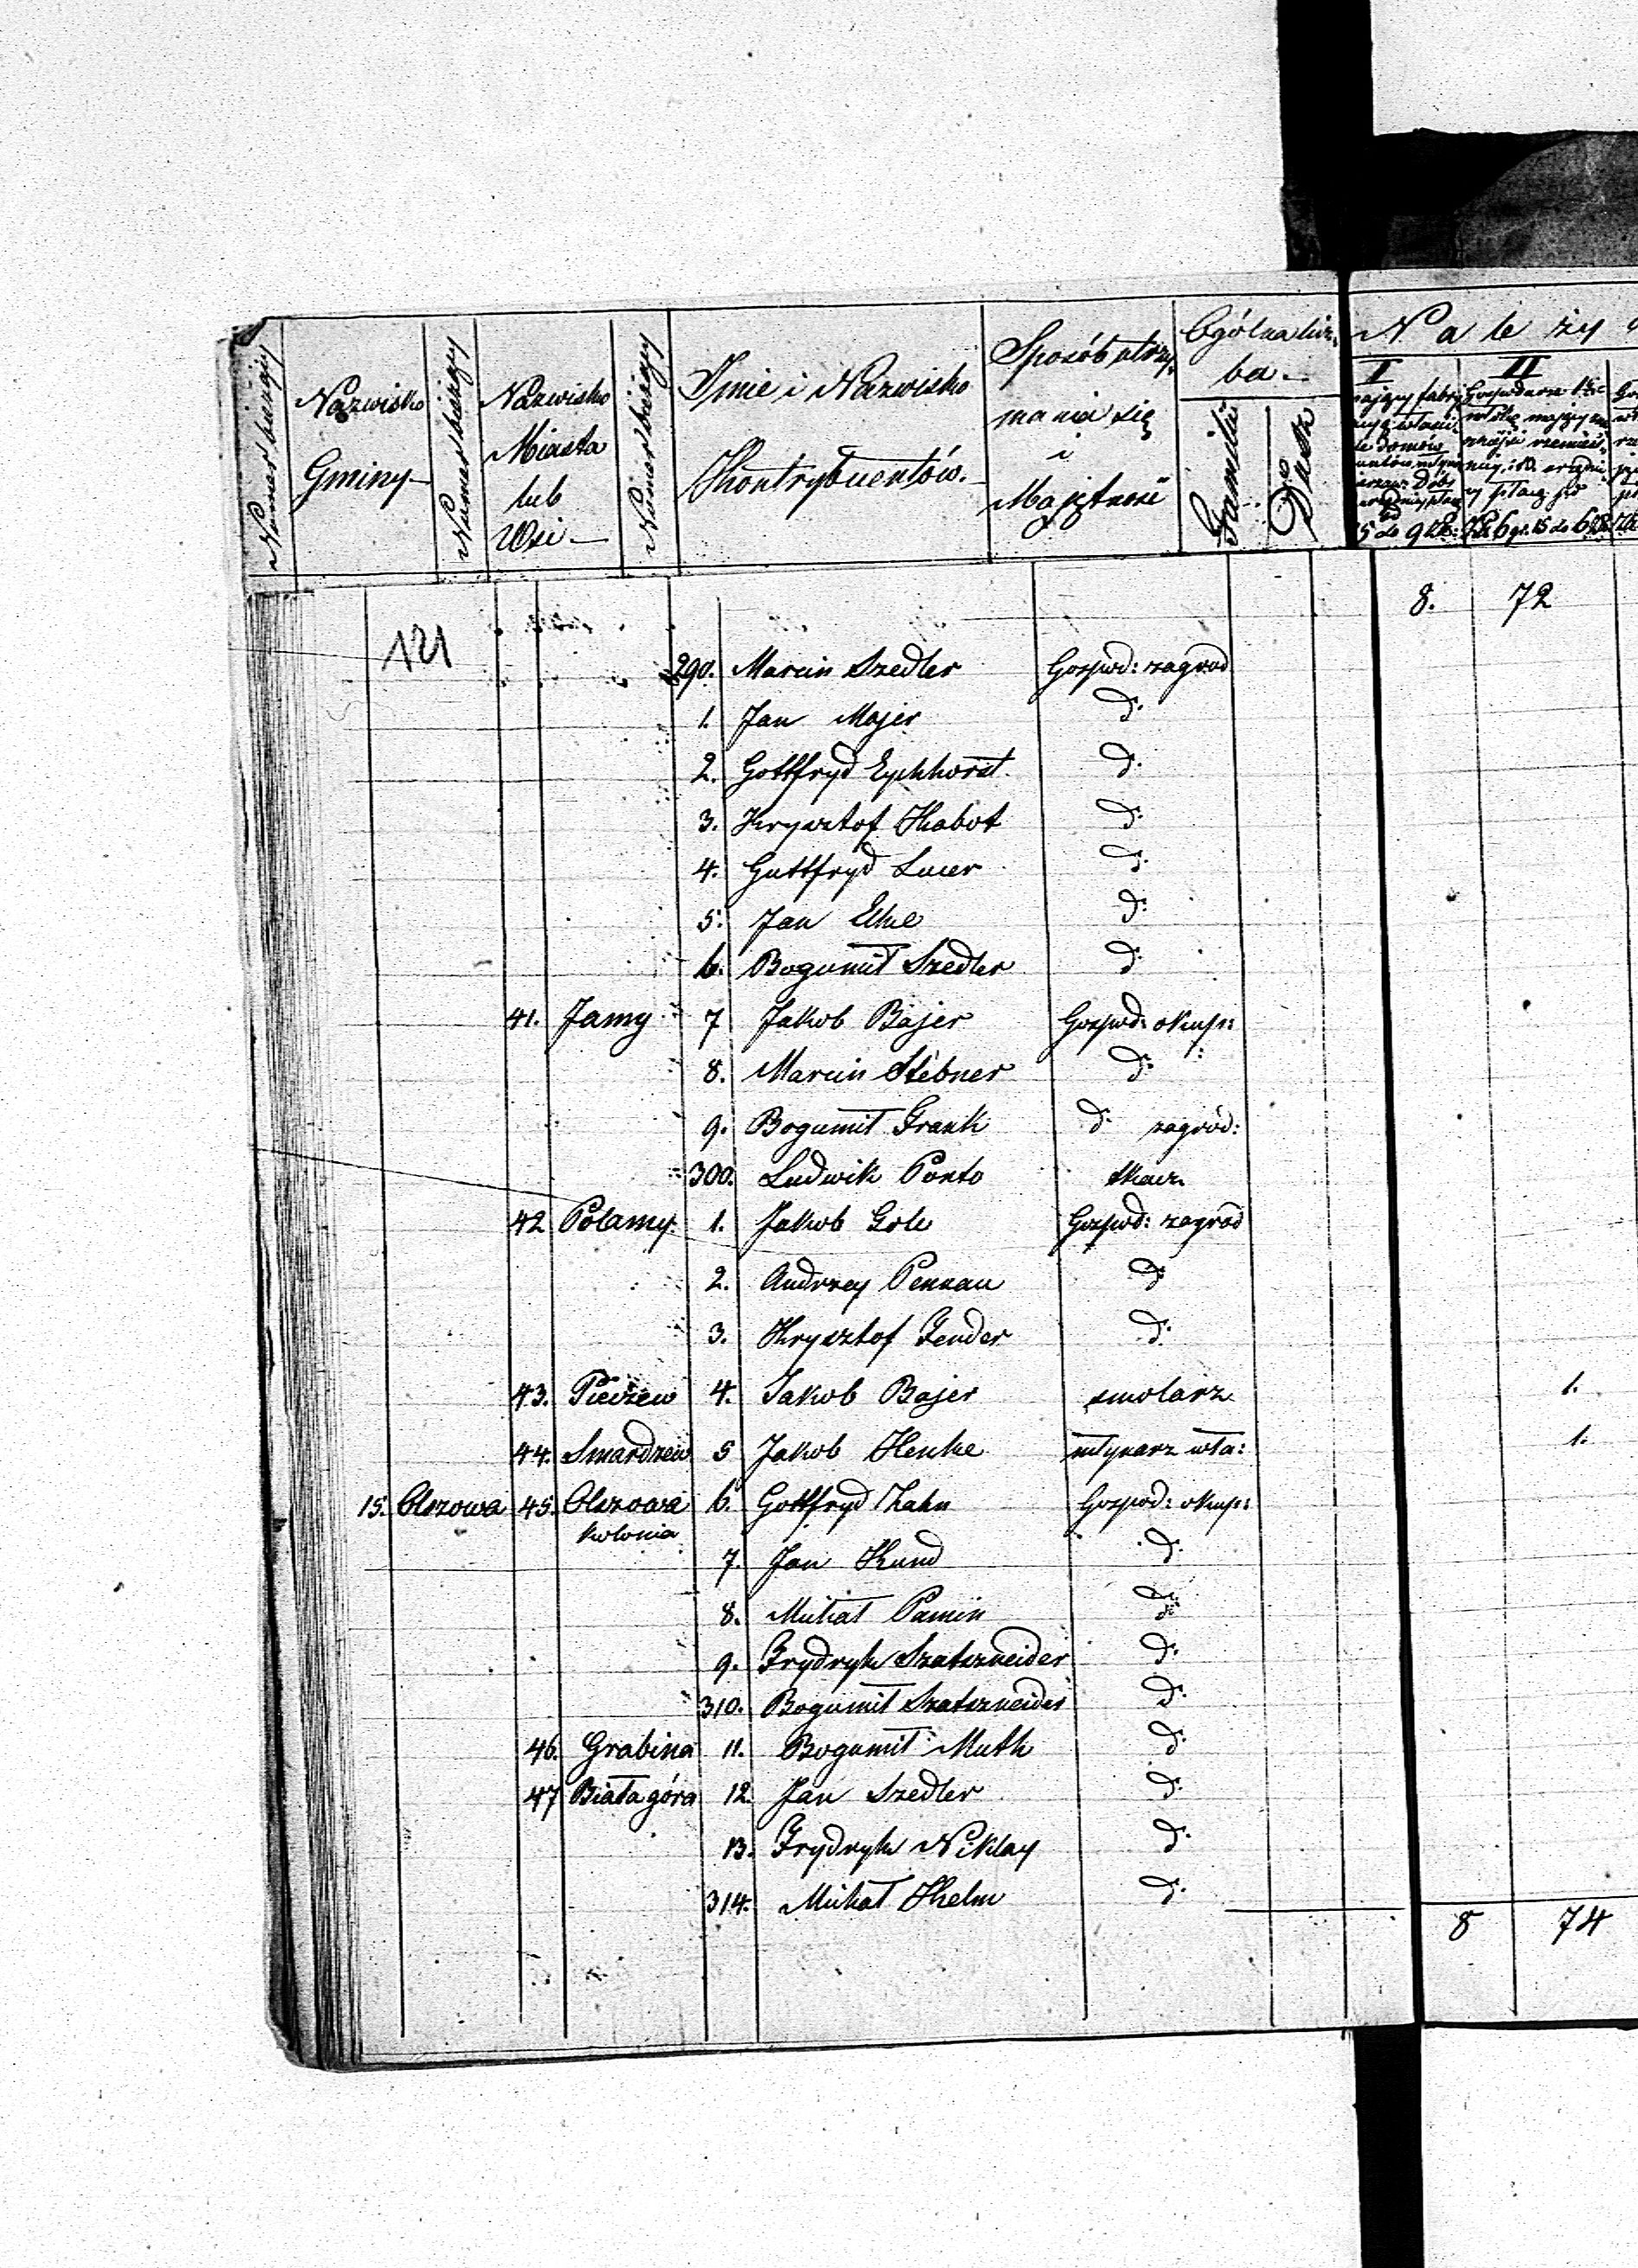 Numer bieżący
Nazwisko
Gminy
Numer bieżący
Nazwisko
Miasta
lub
Wsi
Numer bieżący
Imie i Nazwisko
Kontrybuentów.
Sposób utrzy,
mania się
i
Majątność
Ogólna licz,
ba
Familii
Dusz
N a le ży
I
II
8. 72
121
290. Marcin Szedler Gospod: zagrod
1. Jan Majer d.
2. Gottfryd Eychhorst d.
3. Krysztof Kabot d.
4. Guttfryd d.
5. Jan d.
6. Bogumił Szedler d.
41. Jamy 7 Jakob Bajer Gospod: okup:
8. Marcin Stebner d.
9. Bogumił Frank d. zagród:
300. Ludwik Ponto tkacz
42 Polamy 1. Jakob Gospod: zagrod
2. Andrzey Pennau d
3. Krysztof Fender d.
43. 4. Jakob Bajer smolarz 1.
44. Smardzew 5 Jakob Henke młynarz wła: 1.
15. Olszowa 45. Olszowa 6. Gottfryd Zahn Gospod: okup:
kolonia
7. Jan Kund d.
8. Michał Pamin d:
9. Frydryk Szatszneider d.
310. Bogumił Szatsznéider d.
46. Grabina 11. Bogumił Muth d.
47 Białagóra 12. Jan Szedler d.
13. Frydryk Niklay d.
314. Michał Khelm d.
8 74